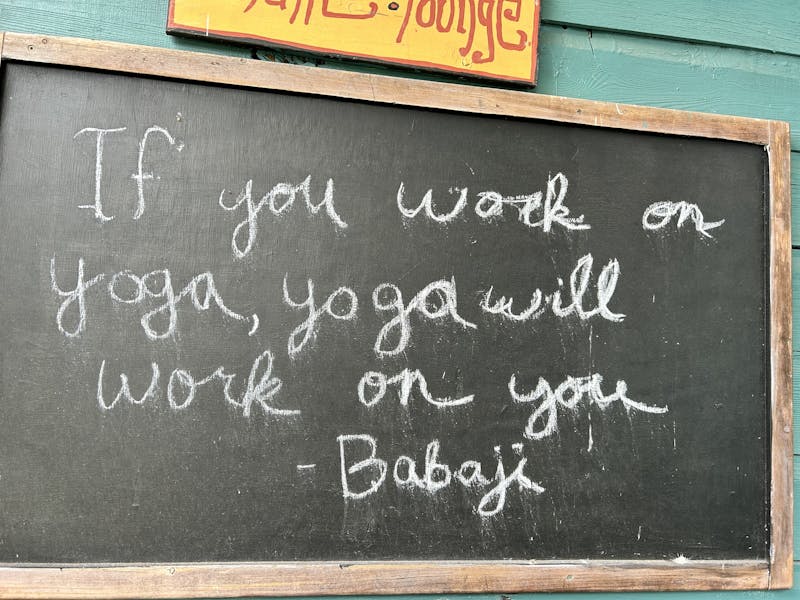 lounge
If you work on
yoga, yoga will
work on you
- Babaji